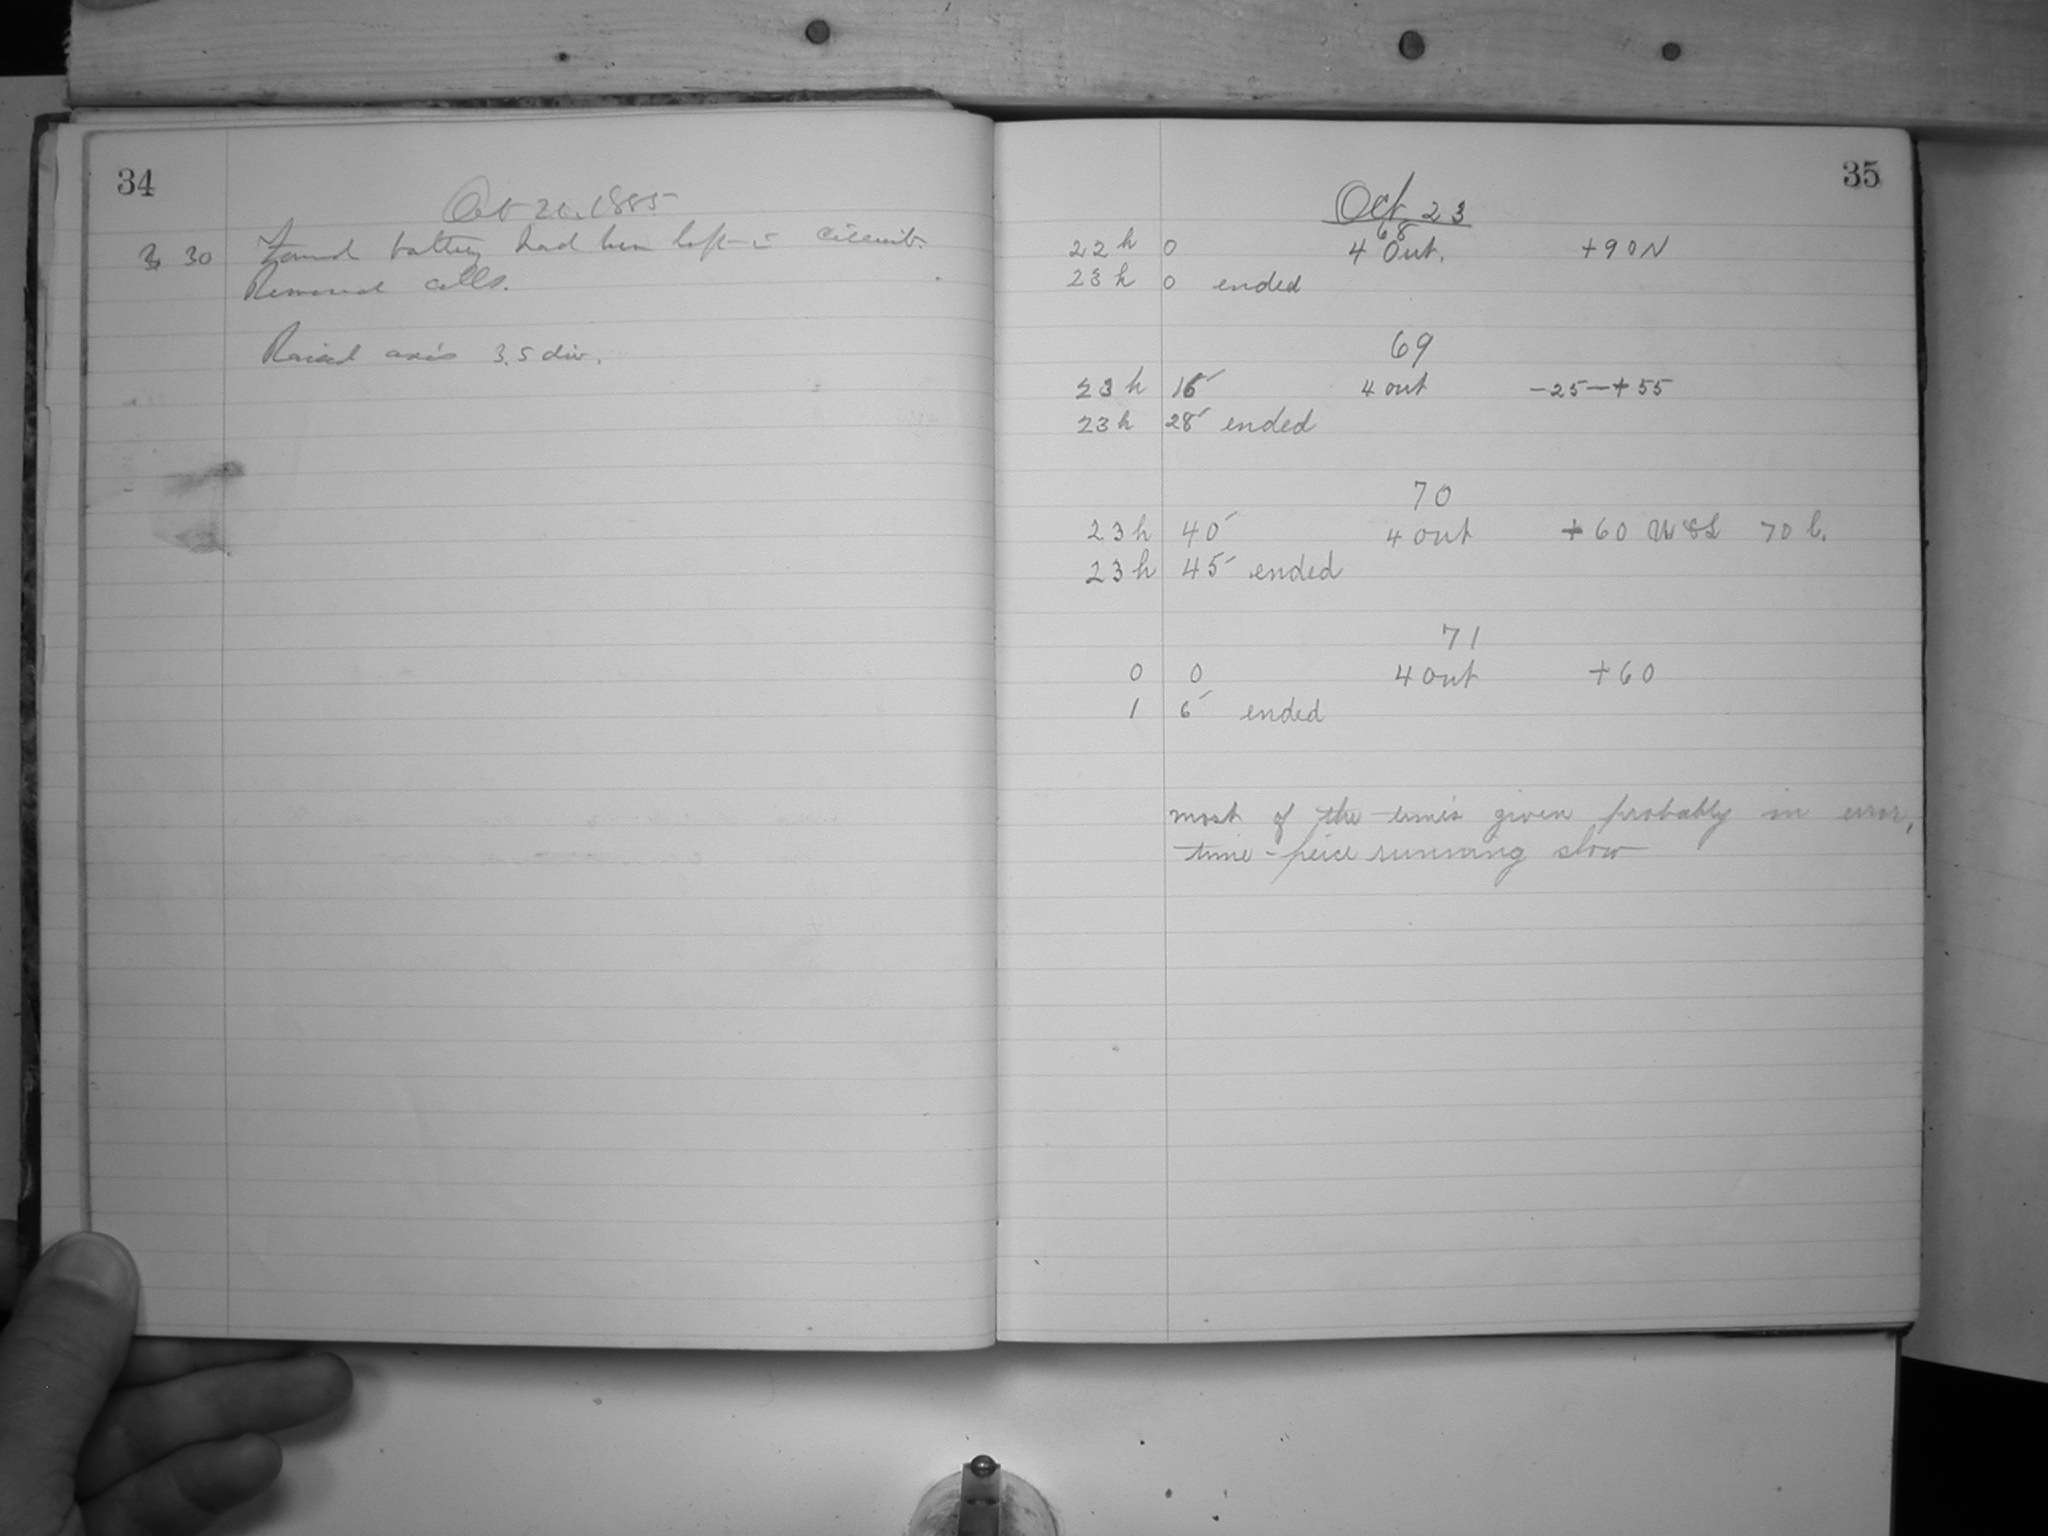 34
Oct 20. 1885
3 30 Found battery had been left in circuit.
Removed cells.
Raised axis 3.5 div.
35
Oct 23
68
22 h 0 4 Out. +90N
23 h 0 ended
69
23 h 15' 4 out -25-+55
23 h 28' ended
70
23 h 40' 4 out +60 U&L 70 l.
23 h 45' ended
71
0 0 4 out +60
1 6' ended
most of the times given probably in error,
time-peice running slow